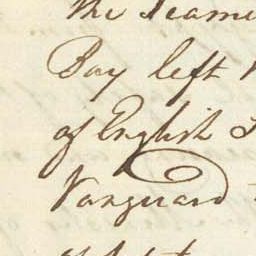 the Seame
Bay left
of English S
Vanguard